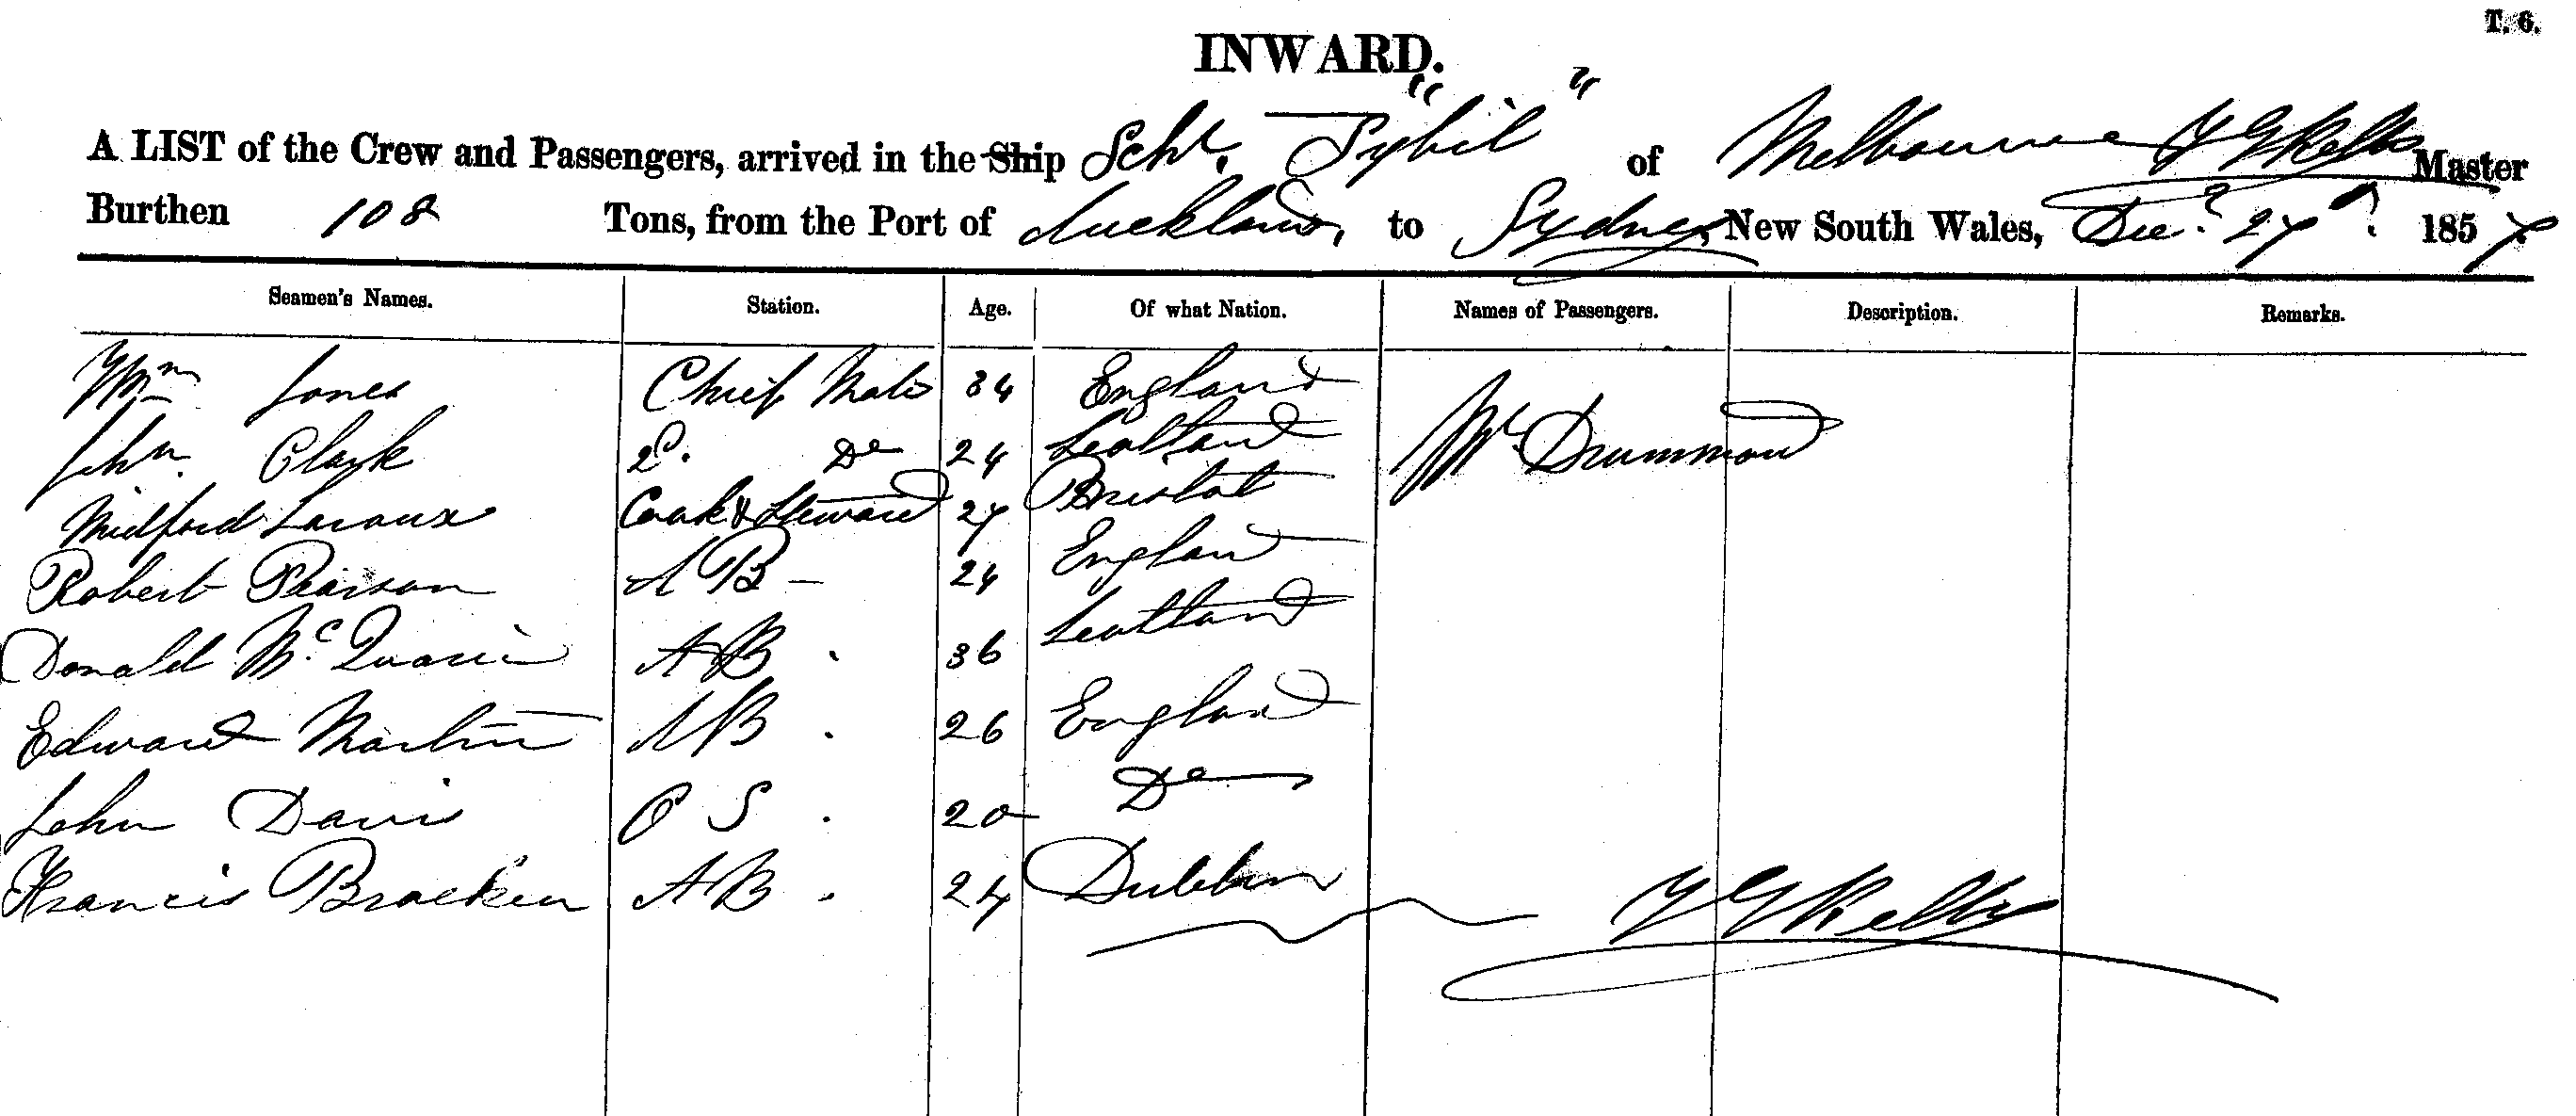 T. 6.
INWARD.
A LIST of the Crew and Passengers, arrived in the Ship Schr. "Sybil" of Melbourne Master
Burthen 108 Tons, from the Port of Auckland, to Sydney, New South Wales, Decr 27th 1857
Seamen's Names. Station. Age. Of what Nation. Names of Passengers. Description. Remarks.
Wm Jones Chief Mate 34 England
John Clark 2d. Do 24 Scotland Mr Drummond
Milford Laroux Cook & Steward 27 Bristol
Robert Pearson A B - 24 England
Donald Mc Quarie A B . 36 Scotland
Edward Martin A B . 26 England
John Davis O S . 20 Do
Francis Bracken A B . 24 Dublin
Kelly